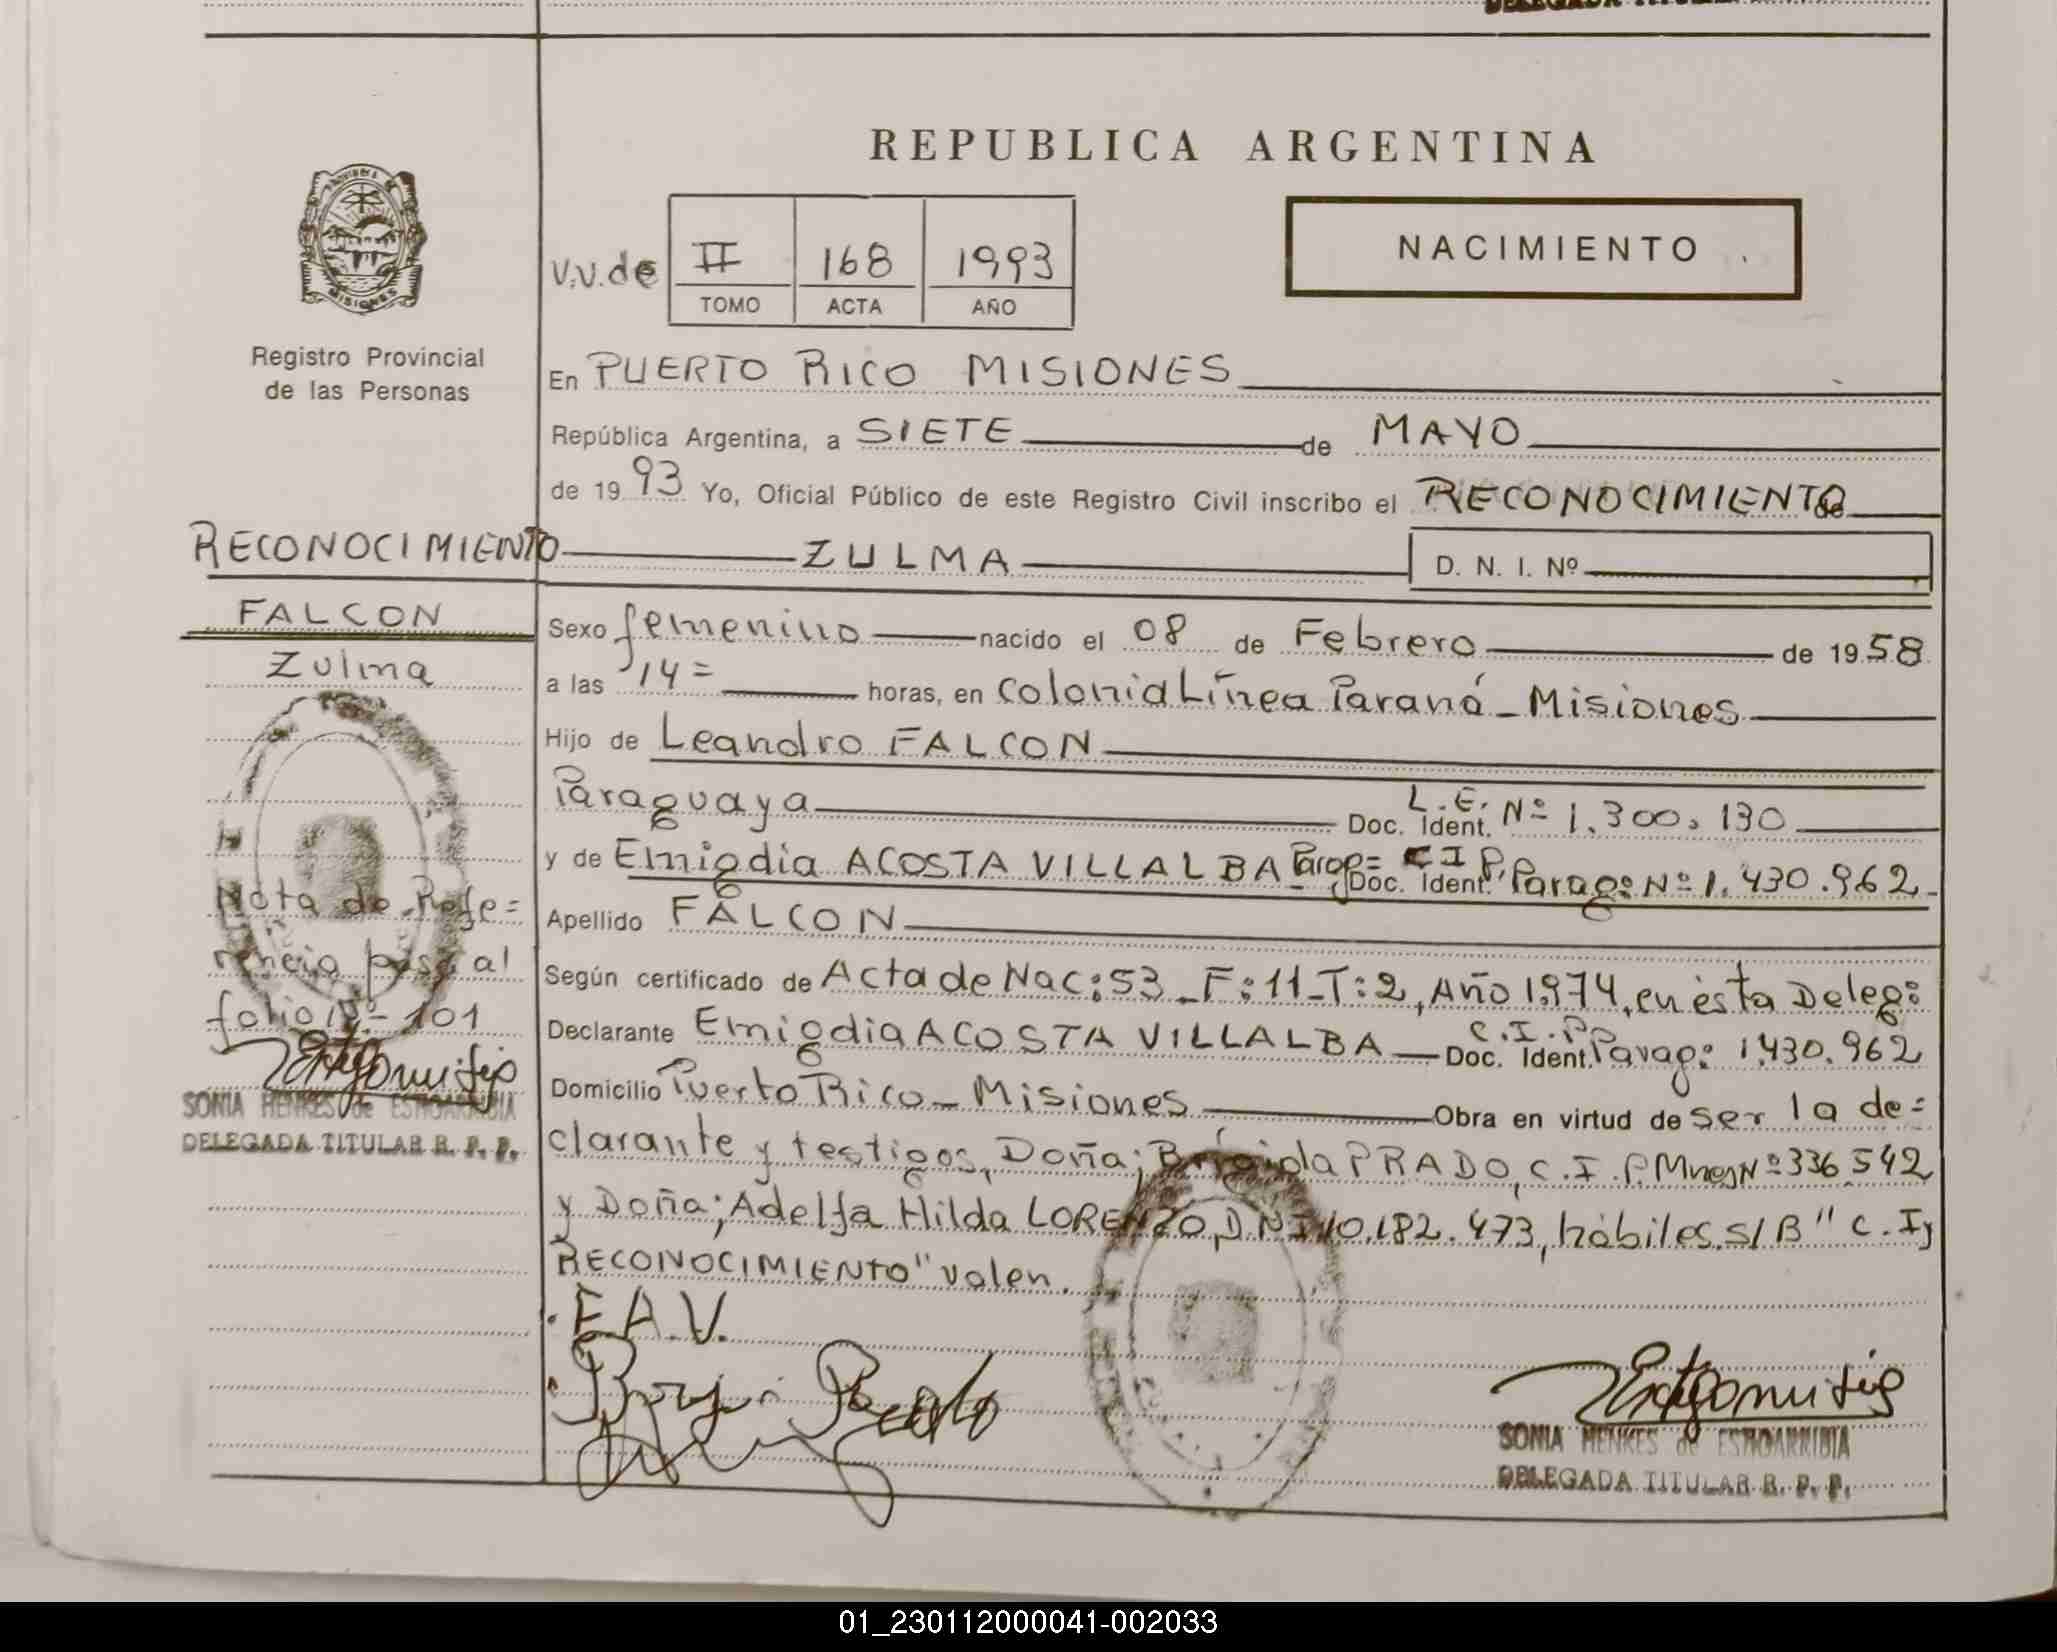 REPUBLICA ARGENTINA
NACIMIENTO
V.V. de II 168 1993
TOMO ACTA AÑO
Registro Provincial
de las Personas
En PUERTO RICO MISIONES
República Argentina, a SIETE de MAYO
de 1993 Yo, Oficial Público de este Registro Civil inscribo el RECONOCIMIENTO de
ZULMA D. N. I. Nº
Sexo femenino nacido el 08 de Febrero de 1958
a las 14= horas, en Colonia Línea Paraná - Misiones
Hijo de Leandro FALCON
Paraguaya Doc. Ident. L.E. Nº 1.300.130
y de Emigdia ACOSTA VILLALBA Parag= Doc. Ident. C I P. Parag: Nº 1.430.962
Apellido FALCON
Según certificado de Acta de Nac: 53 - F: 11 - T: 2, Año 1.974, en ésta Deleg:
Declarante Emigdia ACOSTA VILLALBA Doc. Ident. C.I.P Parag: 1.430.962
Domicilio Puerto Rico - Misiones Obra en virtud de ser la de=
clarante y testigos, Doña; Brígida PRADO, C.I.P. Mnes Nº 336.542
y Doña; Adelfa Hilda LORENZO, D.N.I 10.182.473, hábiles. S/B " C. I y
RECONOCIMIENTO" valen.
E.A.V.
SONIA HENKES de ESTIGARRIBIA
DELEGADA TITULAR R. P. P.
RECONOCIMIENTO
FALCON
Zulma
Nota de Refe=
rencia pasa al
folio Nº- 101
SONIA HENKES de ESTIGARRIBIA
DELEGADA TITULAR R. P. P.
01_230112000041-002033